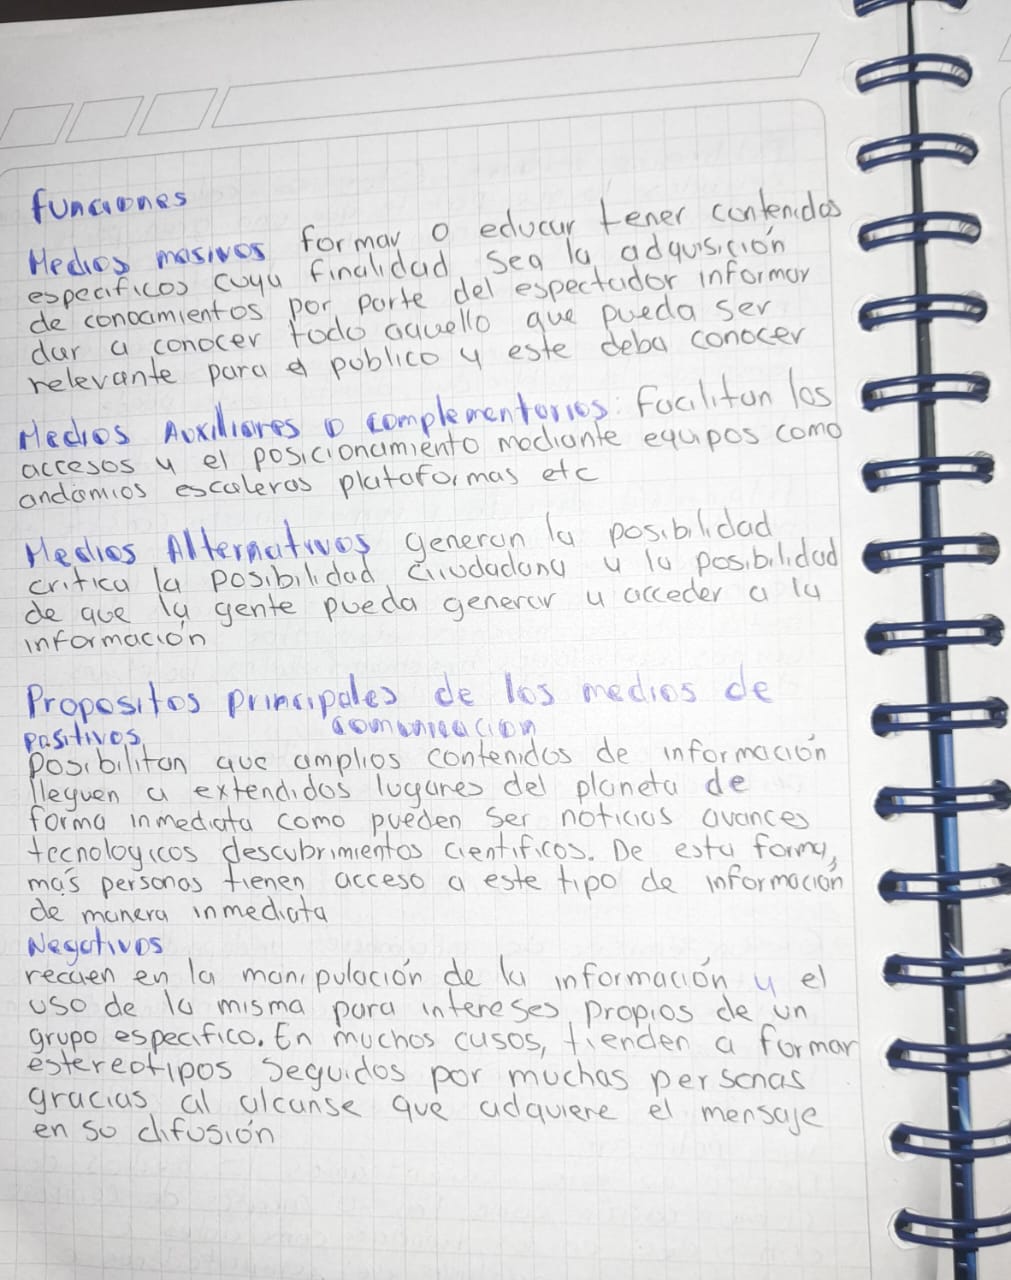 funciones
Medios masivos formar o educar tener contenidos
especificos cuya finalidad sea la adquisición
de conocimientos por parte del espectador informar
dar a conocer todo aquello que pueda ser
relevante para el publico y este deba conocer
Medios Auxiliares o complementarios: Facilitan los
accesos y el posicionamiento mediante equipos como
andamios escaleras plataformas etc
Medios Alternativos generan la posibilidad
critica la posibilidad ciudadana y la posibilidad
de que la gente pueda generar y acceder a la
información
Propositos principales de los medios de
comunicacion
positivos
Posibilitan que amplios contenidos de información
lleguen a extendidos lugares del planeta de
forma inmediata como pueden ser noticias avances
tecnologicos descubrimientos cientificos. De esta forma,
más personas tienen acceso a este tipo de información
de manera inmediata
Negativos
recaen en la manipulación de la información y el
uso de la misma para intereses propios de un
grupo especifico. En muchos casos, tienden a formar
estereotipos seguidos por muchas personas
gracias al alcanse que adquiere el mensaje
en su difusión